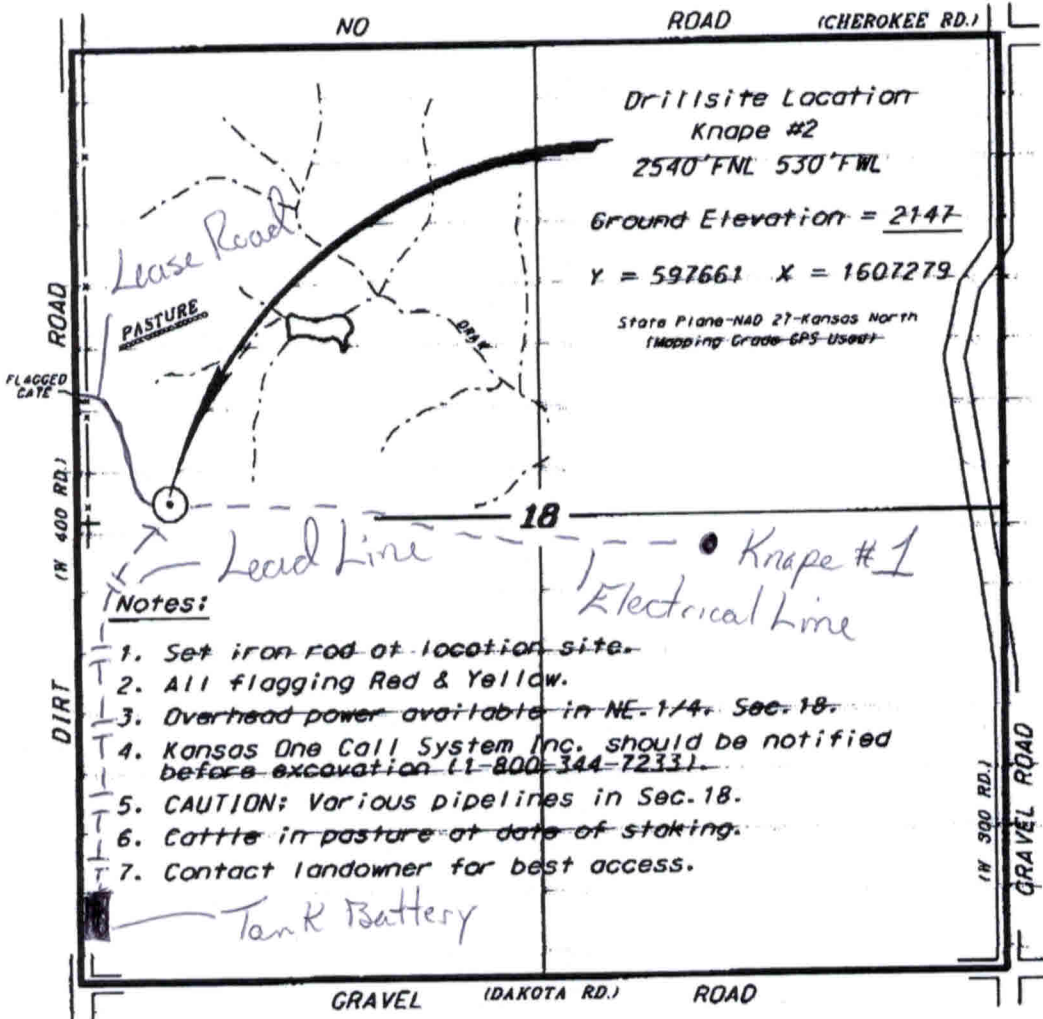 NO ROAD (CHEROKEE RD.)
Drillsite Location
Knape #2
2540'FNL 530'FWL
Ground Elevation = 2147
Y = 597661 X = 1607279
State Plane-NAD 27-Kansas North
(Mapping Grade GPS Used)
Lease Road
PASTURE
DRAW
ROAD
FLAGGED
GATE
(W 400 RD.)
DIRT
18
Lead Line
Knape #1
Electrical Line
Notes:
1. Set iron rod at location site.
2. All flagging Red & Yellow.
3. Overhead power available in NE.1/4. Sec.18.
4. Kansas One Call System Inc. should be notified
before excavation (1-800-344-7233).
5. CAUTION: Various pipelines in Sec.18.
6. Cattle in pasture at date of staking.
7. Contact landowner for best access.
Tank Battery
(W 300 RD.)
GRAVEL ROAD
GRAVEL (DAKOTA RD.) ROAD